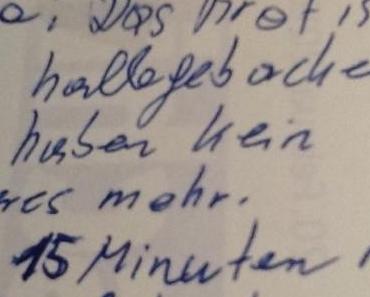 a. Das Brot is
halbgebacke
haben kein
res mehr.
15 Minuten